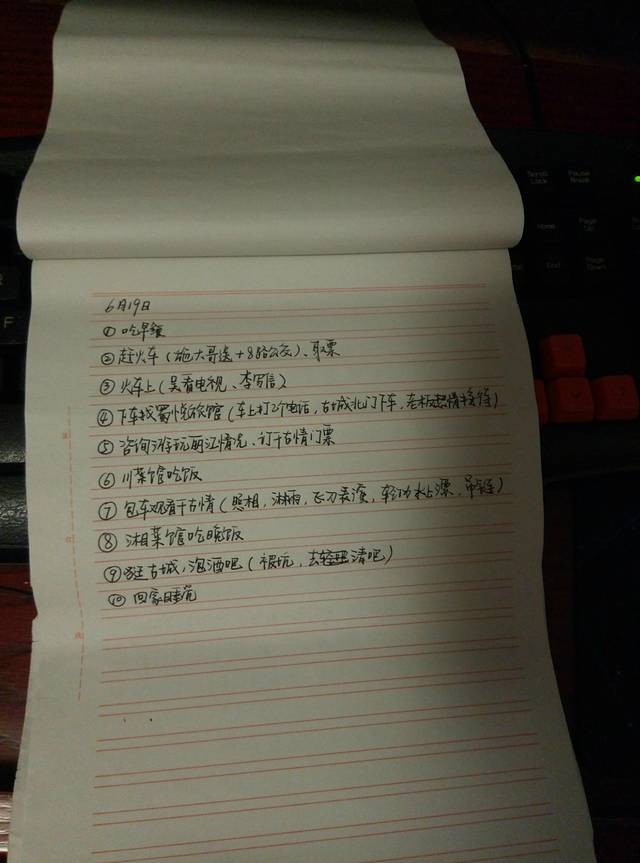 Scroll Lock
Pause Break
Home
Page Up
End
Page Down
F
6月19日
① 吃早餐
② 赶火车(施大哥送+8路公交)、取票
③ 火车上(吴看电视、李写信)
④ 下车找蜀悦旅馆(车上打2个电话,古城北门下车,老板热情接待)
⑤ 咨询游玩丽江情况、订千古情门票
⑥ 川菜馆吃饭
⑦ 包车观看千古情(照相,淋雨,飞刀表演,轻功水上漂,吊
⑧ 湘菜馆吃晚饭
⑨ 逛古城,泡酒吧(被坑,去清吧)
⑩ 回家睡觉